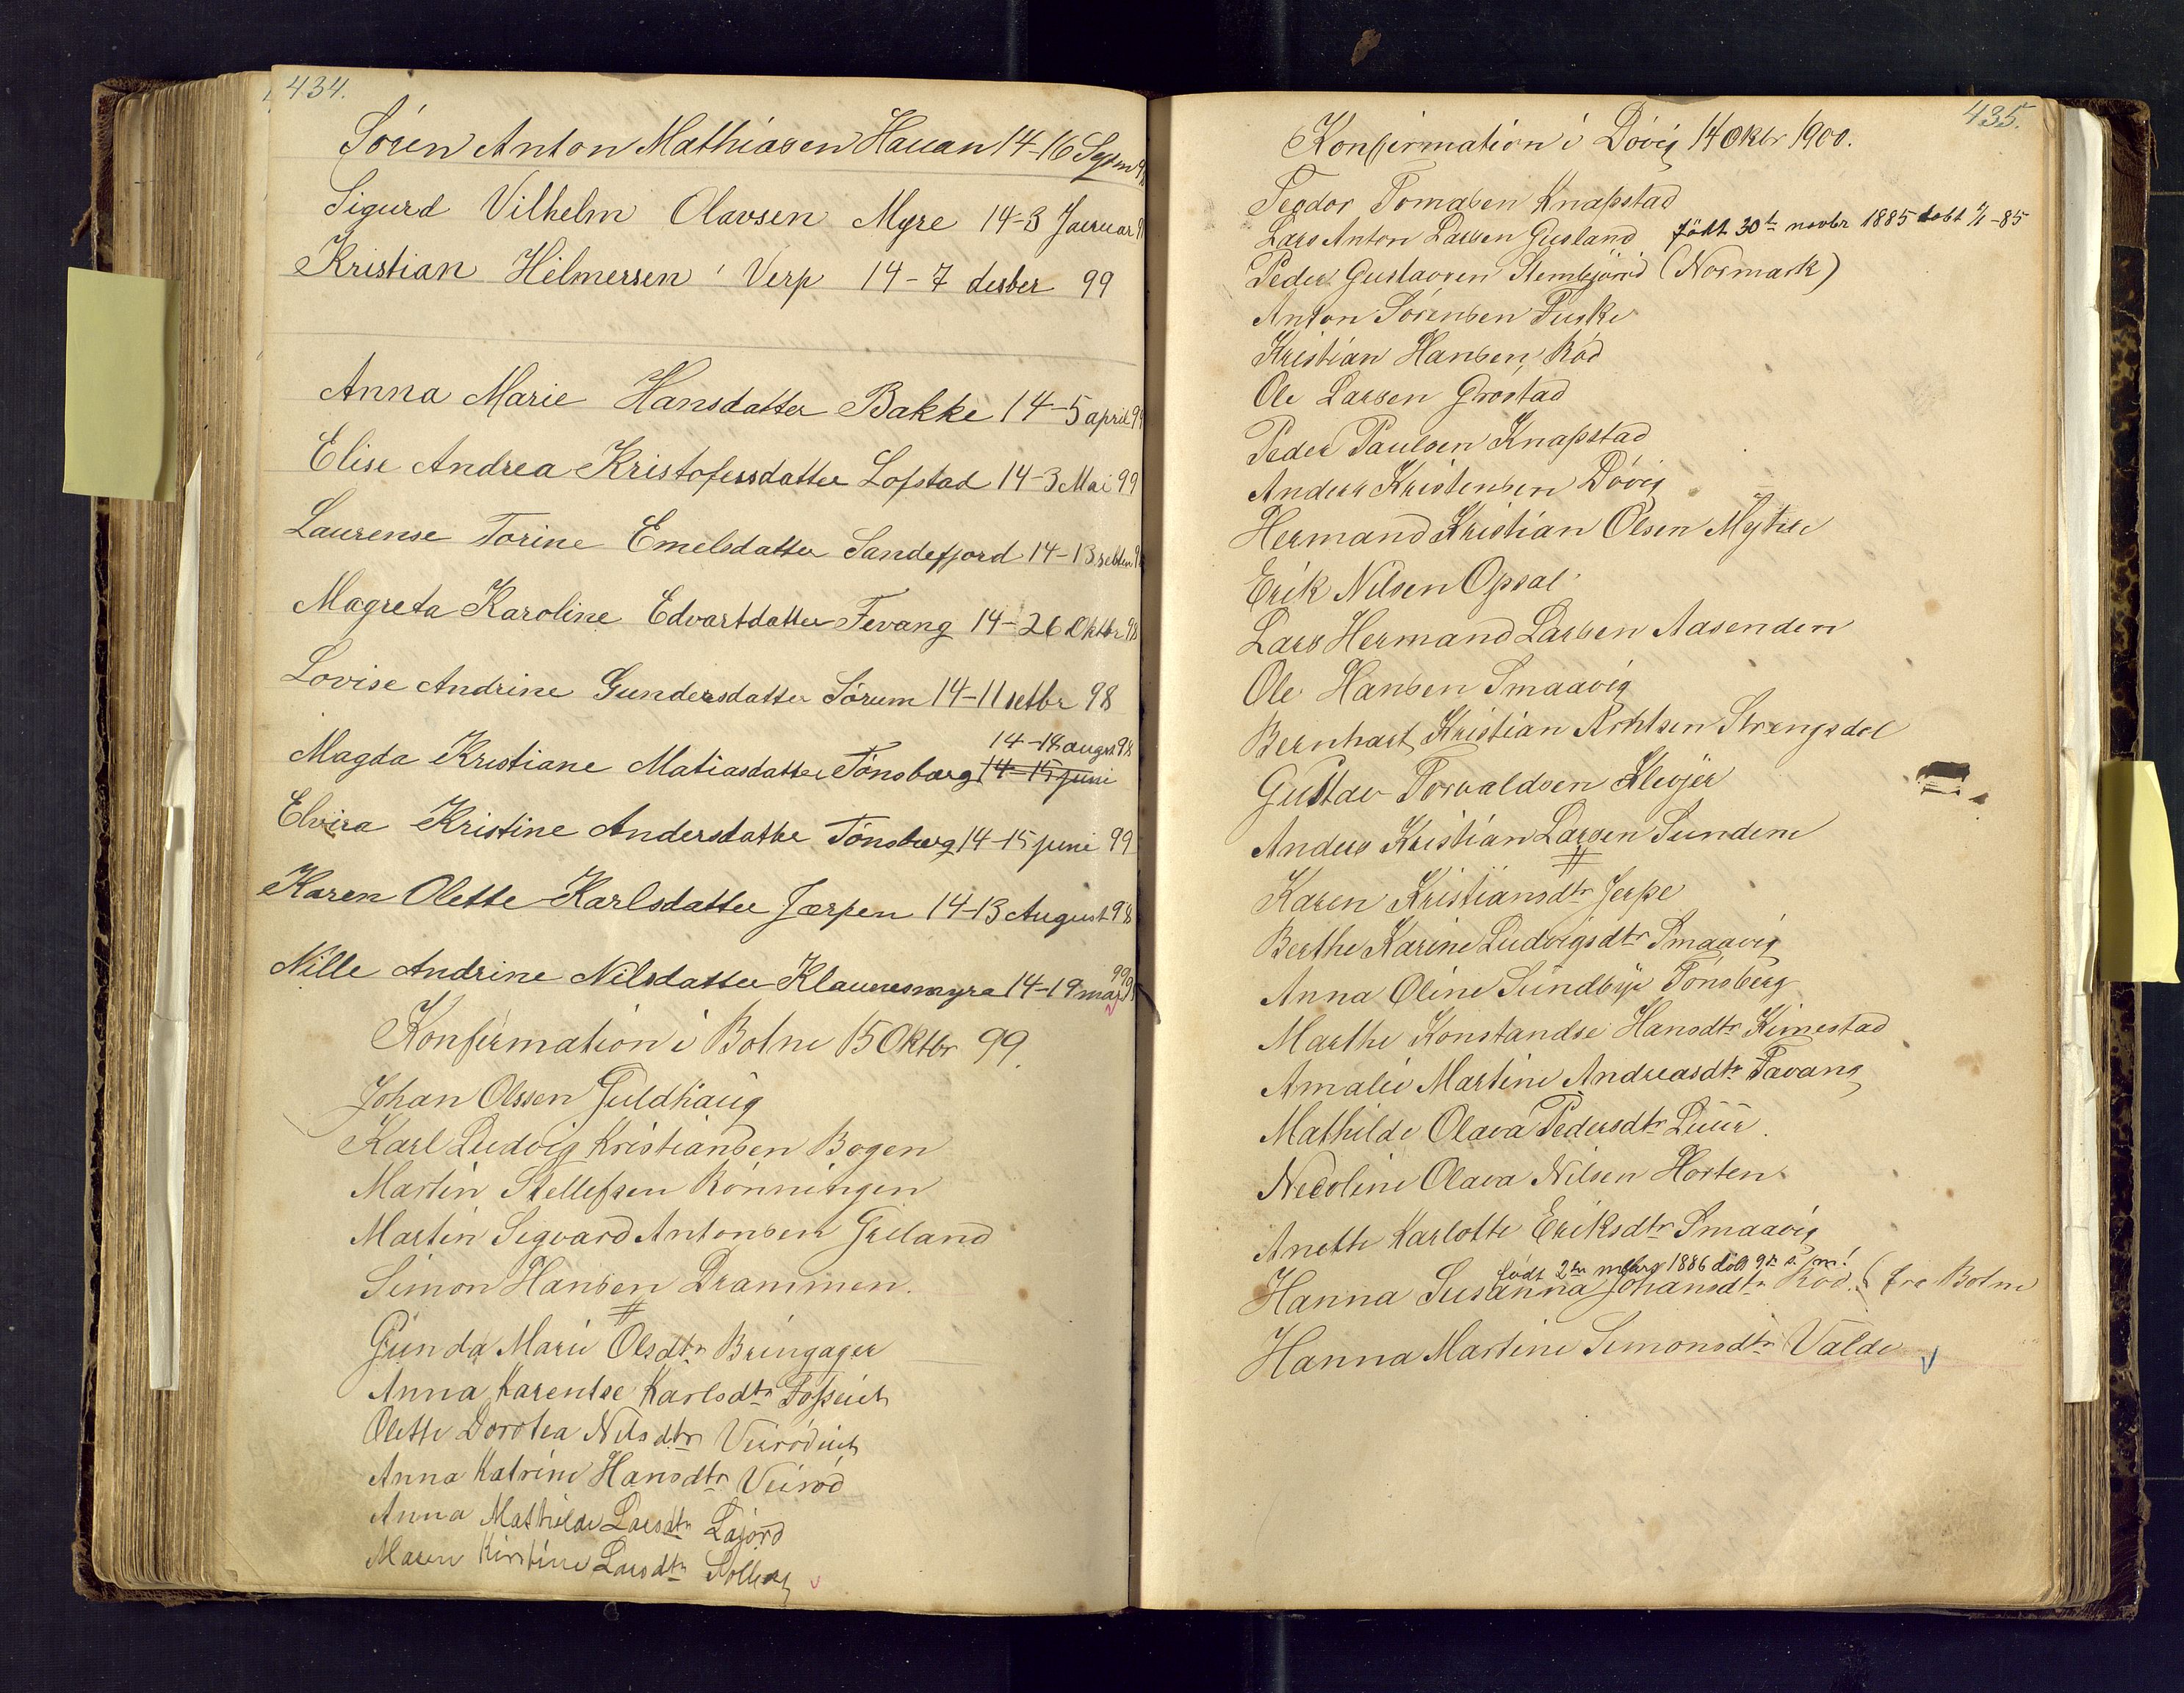 434.
Sören Anton Mathiasen Hauan 14-16 Septm
Sigurd Vilhelm Olavsen Myre 14-3 Januar
Kristian Hilmersen Verp 14-7 desber 99
Anna Marie Hansdatter Bakke 14-5 april 99
Elise Andrea Kristofersdatter Lofstad 14-3 Mai 99
Laurense Torine Emelsdatter Sandefjord 14-13
Magreta Karoline Edvartdatter Fevang 14-26 Oktbr 98
Lovise Andrine Gundersdatter Sörum 14-11 98
14-18 august 98
Magda Kristiane Matiasdatter Tönsberg 14-15 juni
Elvira Kristine Andersdatter Tönsberg 14-15 juni 99
Karen Olette Karlsdatter Jærpen 14-13 August 98
Nille Andrine Nilsdatter Klaunesmyra 14-19 99
Konfirmation i Botne 15 Oktbr 99.
Johan Olssen Fuldhaug
Karl Ludvig Kristiansen Bogen
Martin Stellefsen Rönningen
Martin Sigvard Antonsen Grelland
Simon Hansen Drammen.
#
Gunda Marie Olsdtr Bringager
Anna Karentse Karlsdtr
Olette Dorotea Nilsdtr
Anna Katrine Hansdtr Veiröd
Anna Mathilde Larsdtr Lajord
Maren Kirstine Larsdtr Solberg
435.
Konfirmation i Dövig 14 Oktbr 1900.
Teodor Tomasen Knapstad
Lars Anton Larsen Gusland födt 30te novbr 1885 döbt 1/1-85
Peder Gustavsen (Normark)
Anton Sörensen Fuske
Kristian Hansen, Röd
Ole Larsen Grostad
Peder Paulsen Knapstad
Anders Kristensen Dövig
Hermand Kristian Olsen Mytre
Erik Nilsen Opsal
Lars Hermand Larsen Aasenden
Ole Hansen Smaavig
Bernhart Kristian Strengsdal
Gustav Torvaldsen Klevjer
Anders Kristian Larsen Sundene
#
Karen Kristiansdtr Jerpe
Berthe Karine Ludvigsdtr Smaavig
Anna Oline Sundbye Tönsberg
Marthe Konstandse Hansdtr Kimestad
Amalie Martine Andreasdtr Favang
Mathilde Olava Pedersdtr Luur.
Nicoline Olava Nilsen Horten
Anette Karlotte Eriksdtr Smaavig
födt 2den 1886 döbt 9de s. m!
Hanna Susanna Johansdtr Röd. (fra Botne
Hanna Martine Simonsdtr Valde